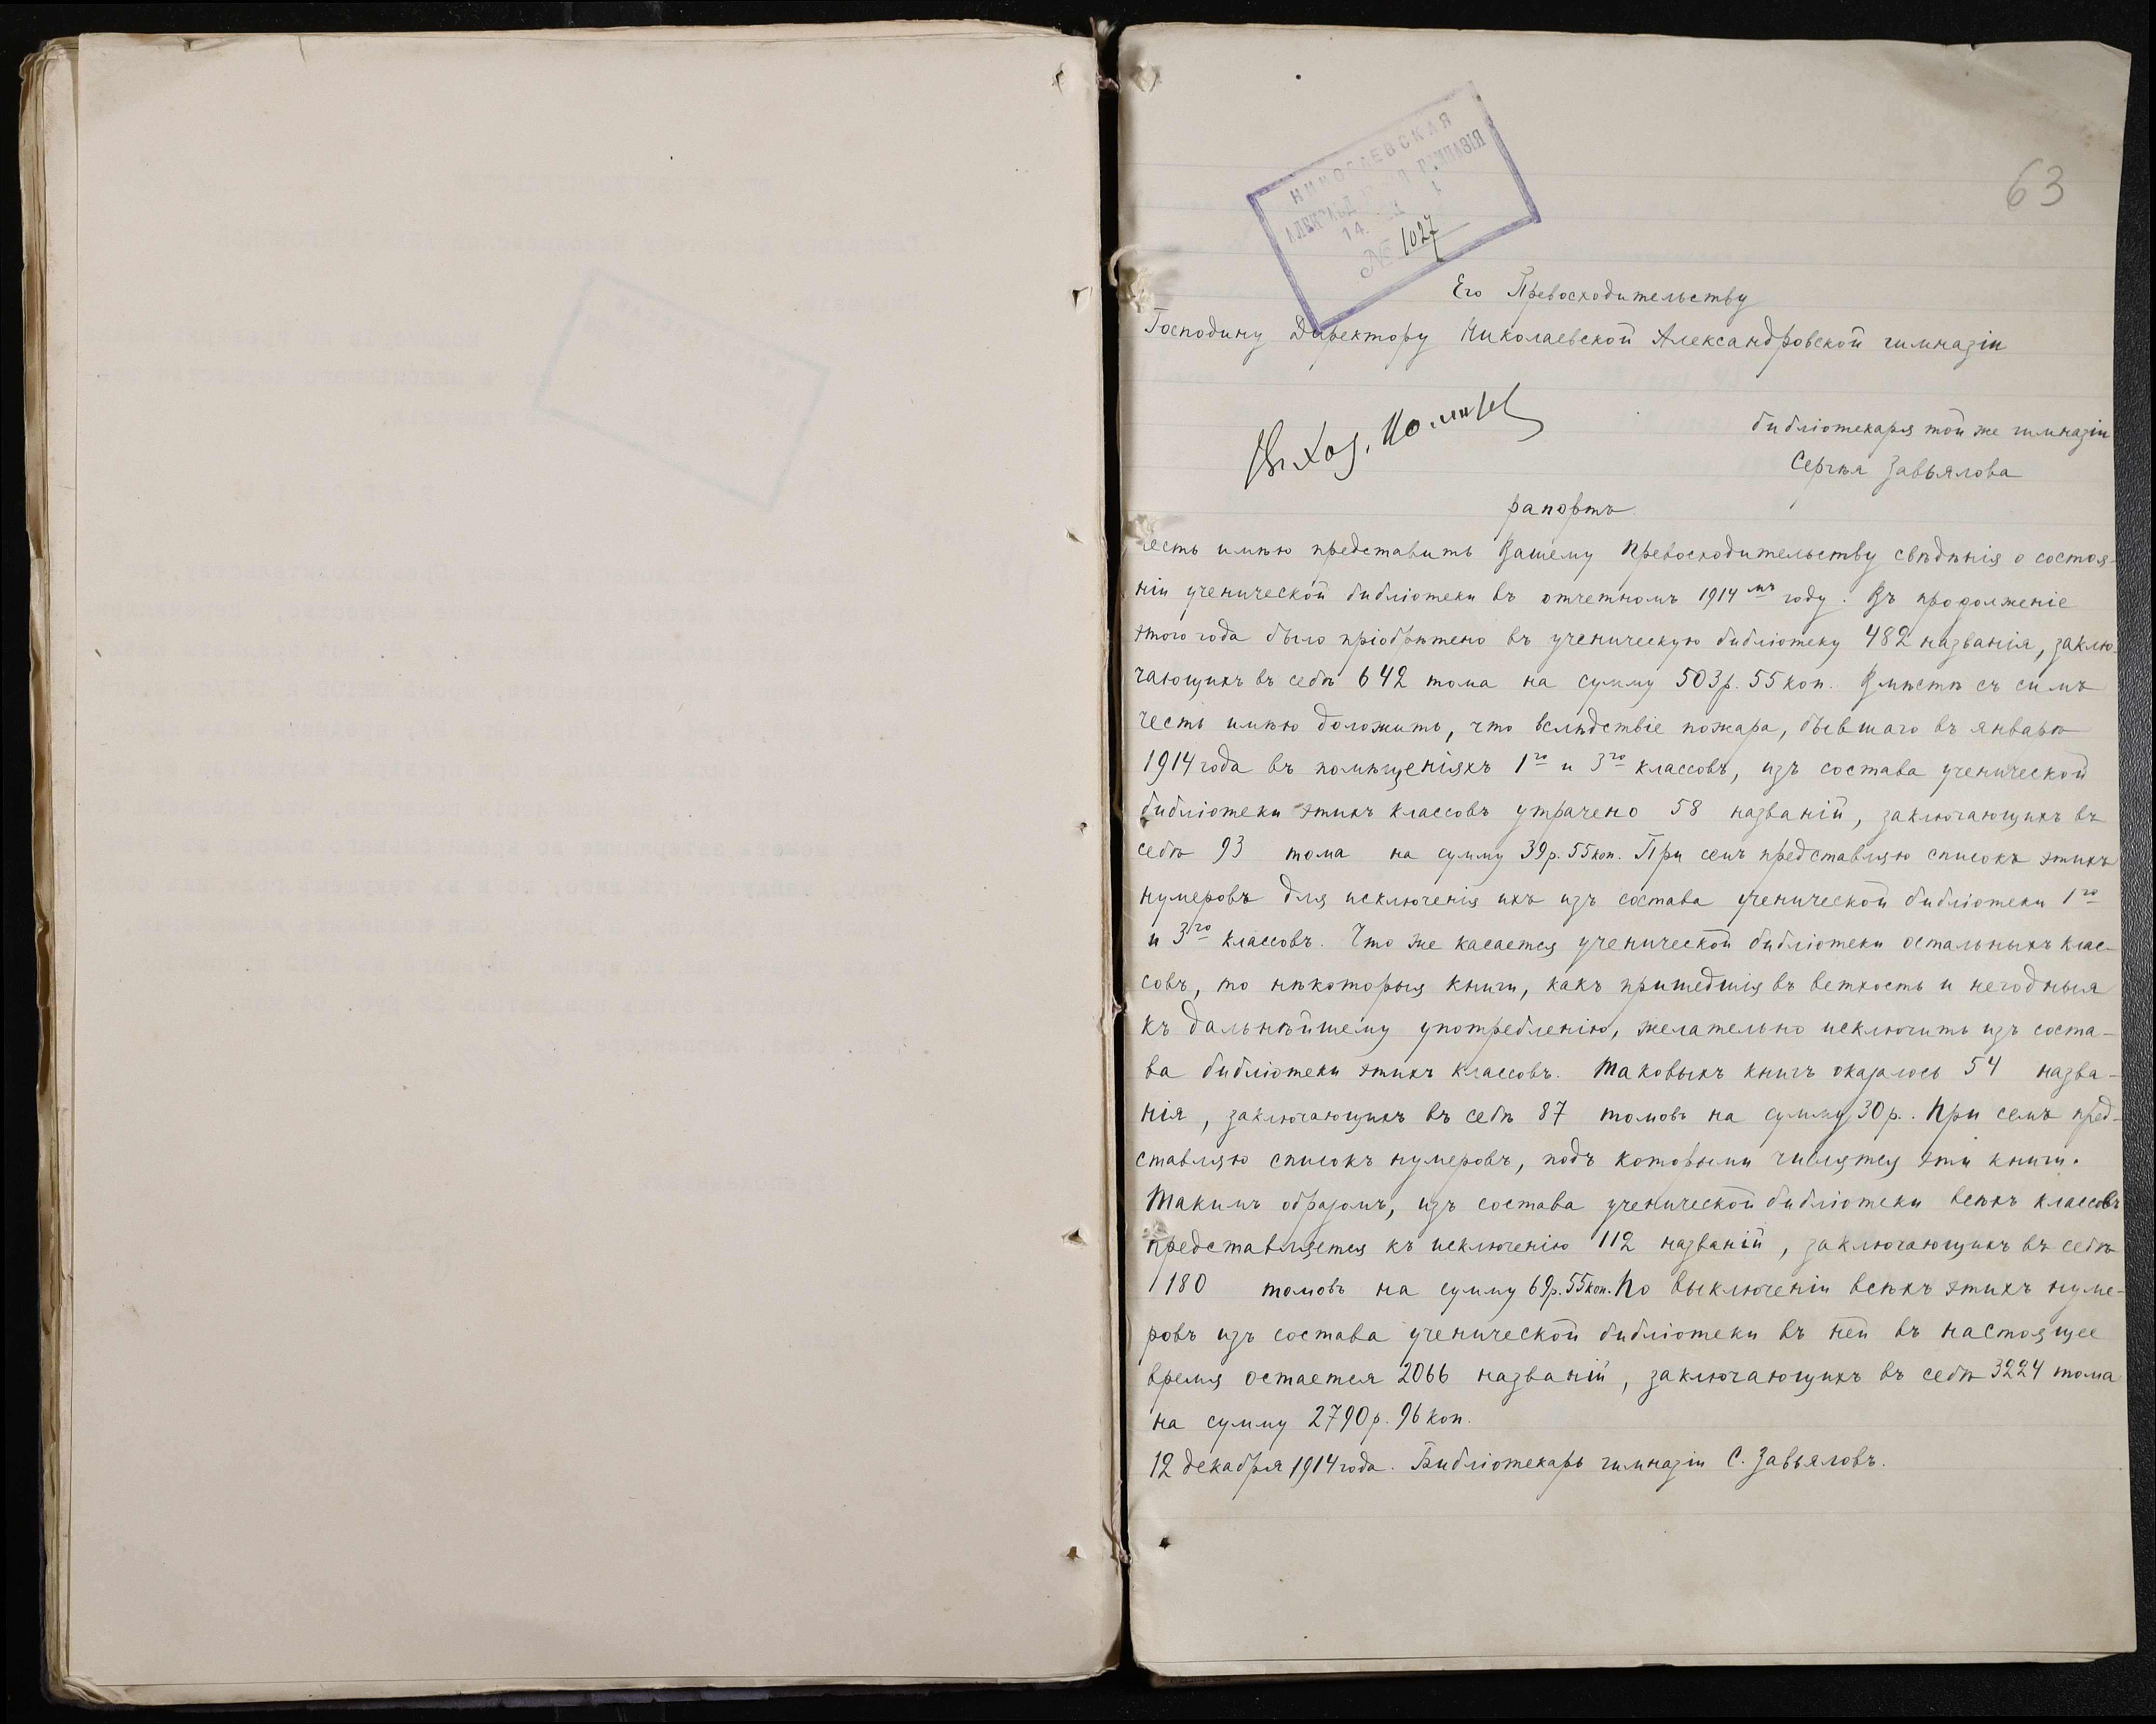 63
НИКОЛАЕВСКАЯ
АЛЕКСАНДРОВСКАЯ ГИМНАЗІЯ
14
№ 1027
Его Превосходительству
Господину Директору Николаевской Александровской гимназіи
библіотекаря той же гимназіи
Сергѣя Завьялова
рапортъ
Честь имѣю представить Вашему Превосходительству свѣдѣнія о состоя-
ніи ученической библіотеки въ отчетномъ 1914 мъ году. Въ продолженіе
этого года было пріобрѣтено въ ученическую библіотеку 482 названія, заклю-
чающихъ въ себѣ 642 тома на сумму 503 р. 55 коп. Вмѣстѣ съ симъ
честь имѣю доложить, что вслѣдствіе пожара, бывшаго въ январѣ
1914 года въ помѣщеніяхъ 1го и 3го классовъ, изъ состава ученической
библіотеки этихъ классовъ утрачено 58 названій, заключающихъ въ
себѣ 93 тома на сумму 39 р. 55 коп. При семъ представляю списокъ этихъ
нумеровъ для исключенія ихъ изъ состава ученической библіотеки 1го
и 3го классовъ. Что же касается ученической библіотеки остальныхъ клас-
совъ, то нѣкоторыя книги, какъ пришедшія въ ветхость и негодныя
къ дальнѣйшему употребленію, желательно исключить изъ соста-
ва библіотеки этихъ классовъ. Таковыхъ книгъ оказалось 54 назва-
нія, заключающихъ въ себѣ 87 томовъ на сумму 30 р. При семъ пред-
ставляю списокъ нумеровъ, подъ которыми числятся эти книги.
Такимъ образомъ, изъ состава ученической библіотеки всѣхъ классовъ
представляется къ исключенію 112 названій, заключающихъ въ себѣ
180 томовъ на сумму 69 р. 55 коп. По выключеніи всѣхъ этихъ нуме-
ровъ изъ состава ученической библіотеки въ ней въ настоящее
время остается 2066 названій, заключающихъ въ себѣ 3224 тома
на сумму 2790 р. 96 коп.
12 декабря 1914 года. Библіотекарь гимназіи С. Завьяловъ.